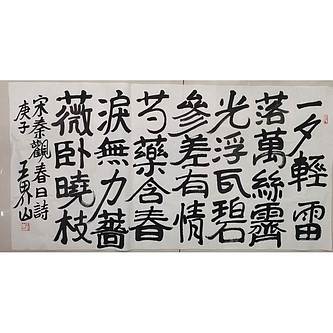 一夕輕雷
落萬絲霽
光浮瓦碧
參差有情
芍藥含春
淚無力薔
薇卧曉枝
宋秦觀春日詩
庚子 王界山